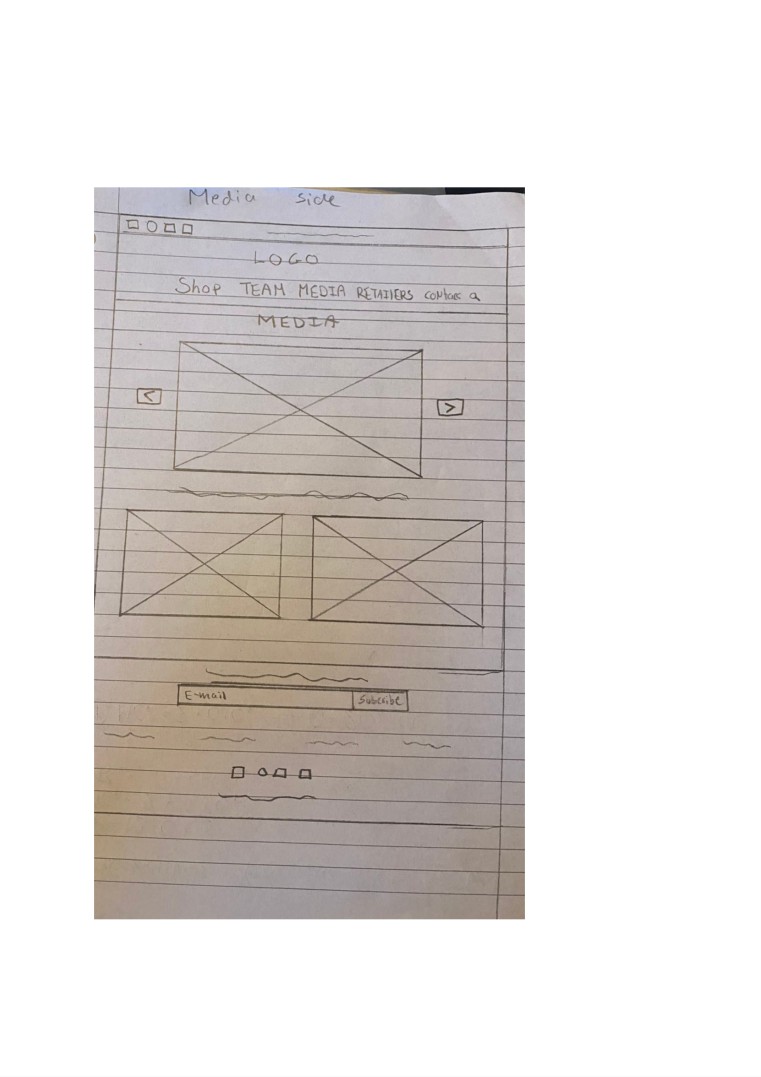 Media side
LOGO
Shop TEAM MEDIA RETAILERS
MEDIA
<
>
E-mail
Subscribe